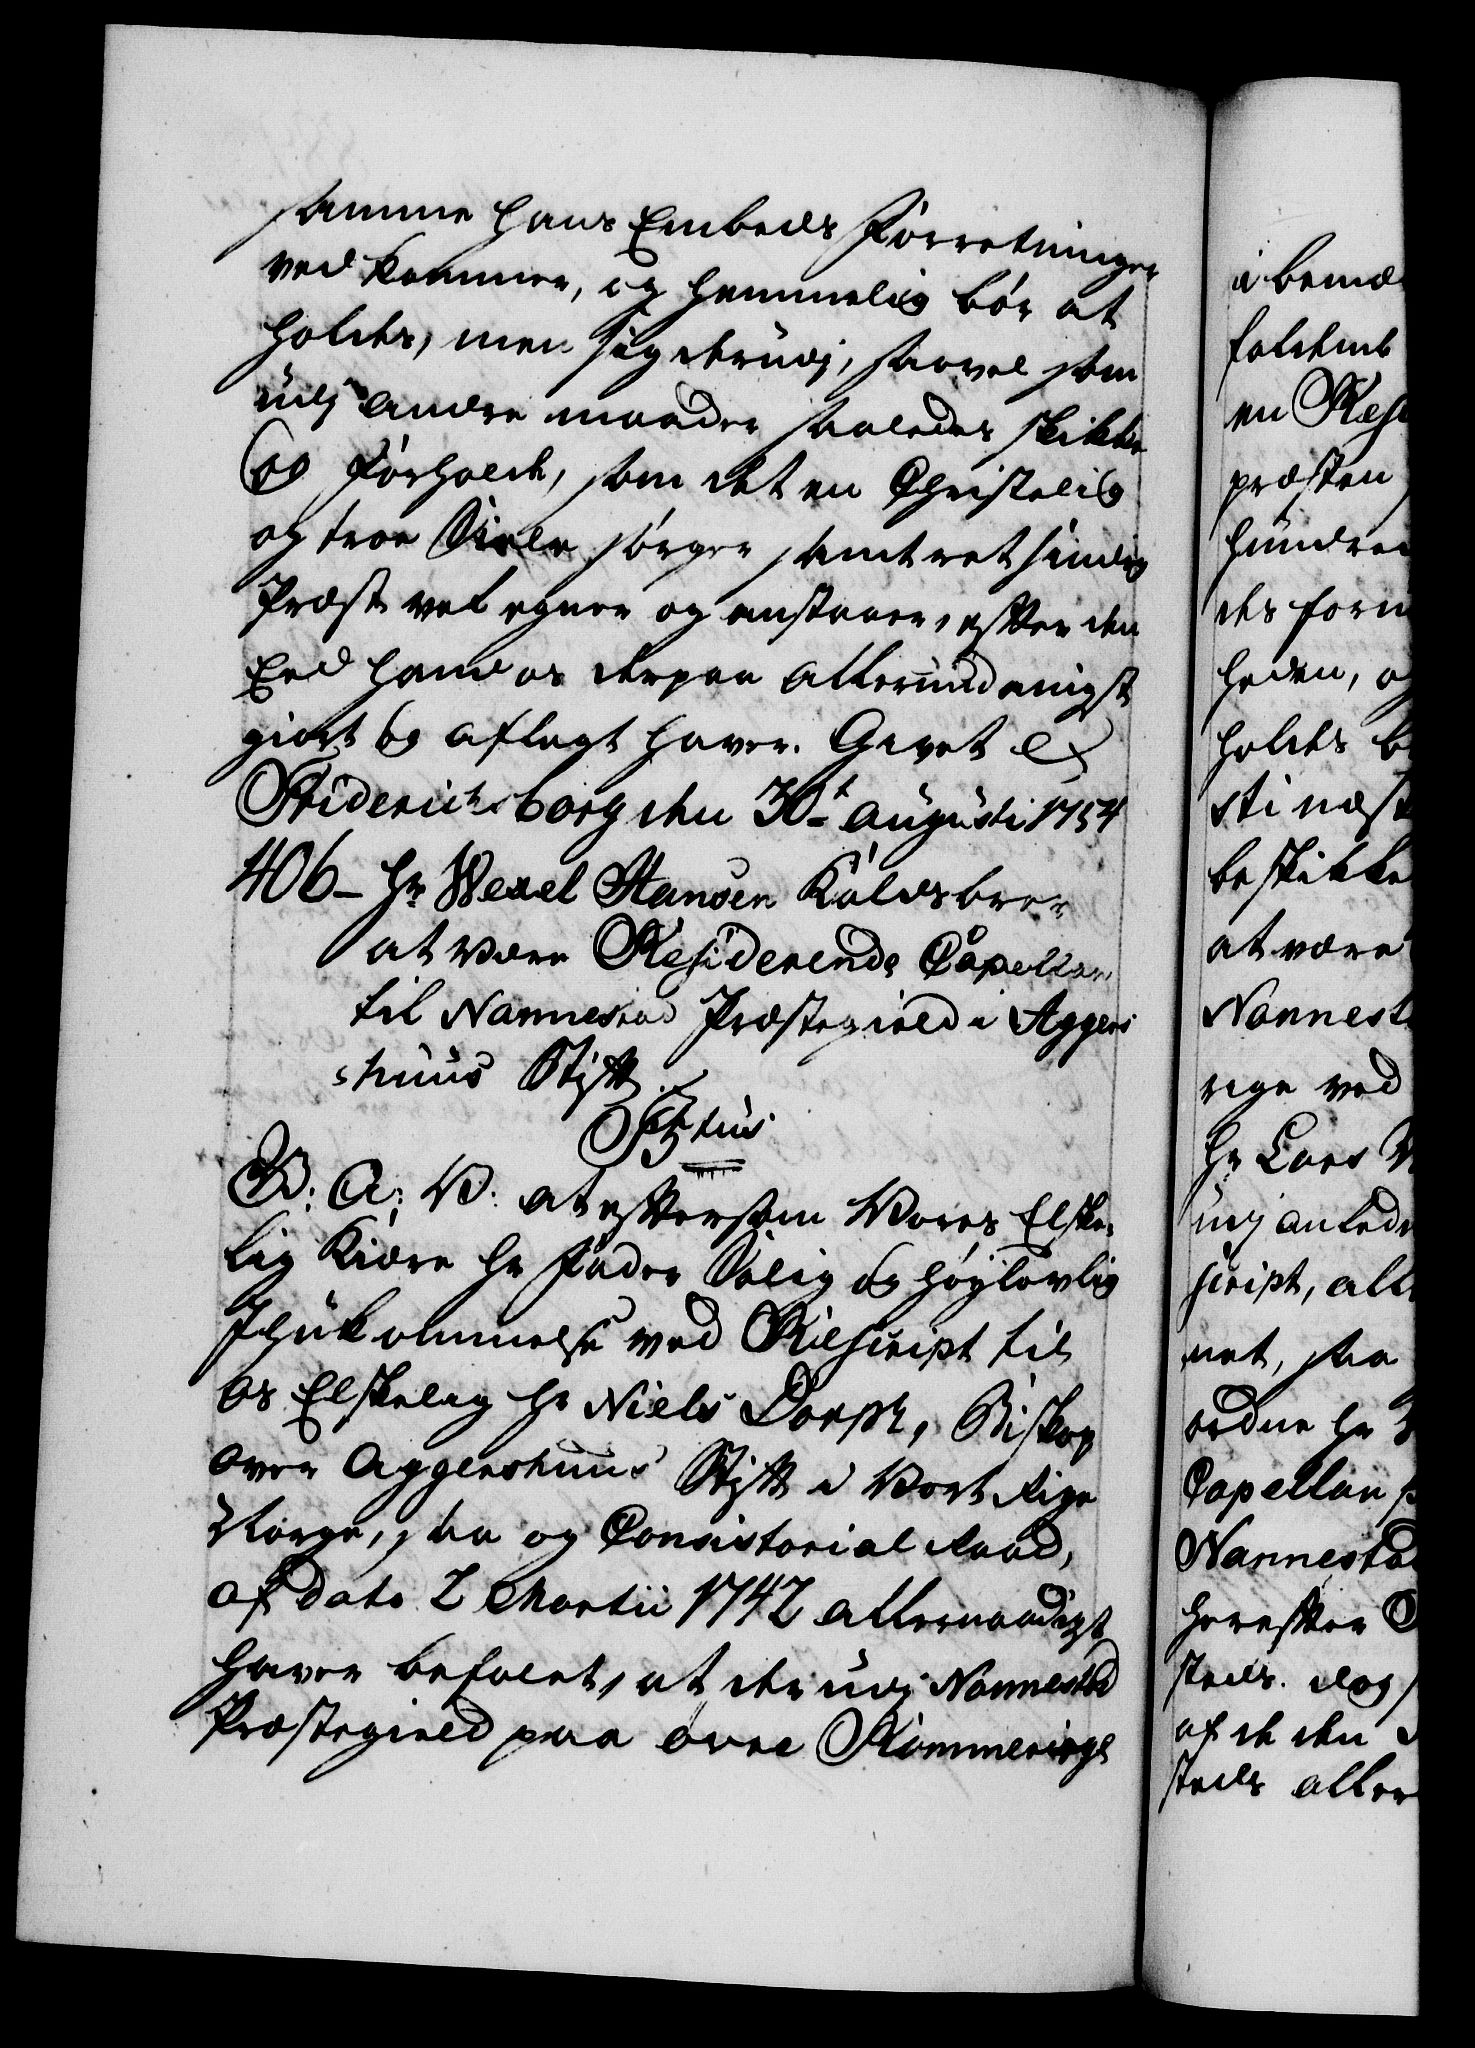 samme hans Embeds Forretninger
vedkommer, og hemmelig bör at
holdes, men sig derudj, saavel som
udj andre maader saaledes skikke
og forholde, som det en Christelig
og troe Siæle sørger samt retsindig
Præst vel egner og anstaaer, efter den
Eed hand os derpaa allerunderdanigst
giort og aflagt haver. Givet &
Friderichsborg den 30t Augusti 1754
406 - Hr Wexel Hansen Koldsbroe
at være Residerende Capellan
til Nannestad Præstegield i Aggers
huus Stift.
F 5tus
G: A: V: at eftersom Vores Elske-
lig Kiære Hr Fader Salig og høylovlig
Ihukommelse ved Rescript til
os Elskelig Hr Niels Dorph, Biskop
over Aggershuus Stift i Vort Rige
Norge, saa og Consistorial Raad,
af dato 2 Martii 1742 allernaadigst
haver befalet, at der udj Nannestad
Præstegield paa øvre Rommerige
i bemæ
faldend
en Resi
præsten
hundre
des form
heden, og
holdes b
sti næst
beskikke
at være
Nannest
rige ved
Hr Lars
udj anled
script, all
net, saa
ordne Hr
Capellan
Nannestad
herefter
steds. dog
af de den
steds aller